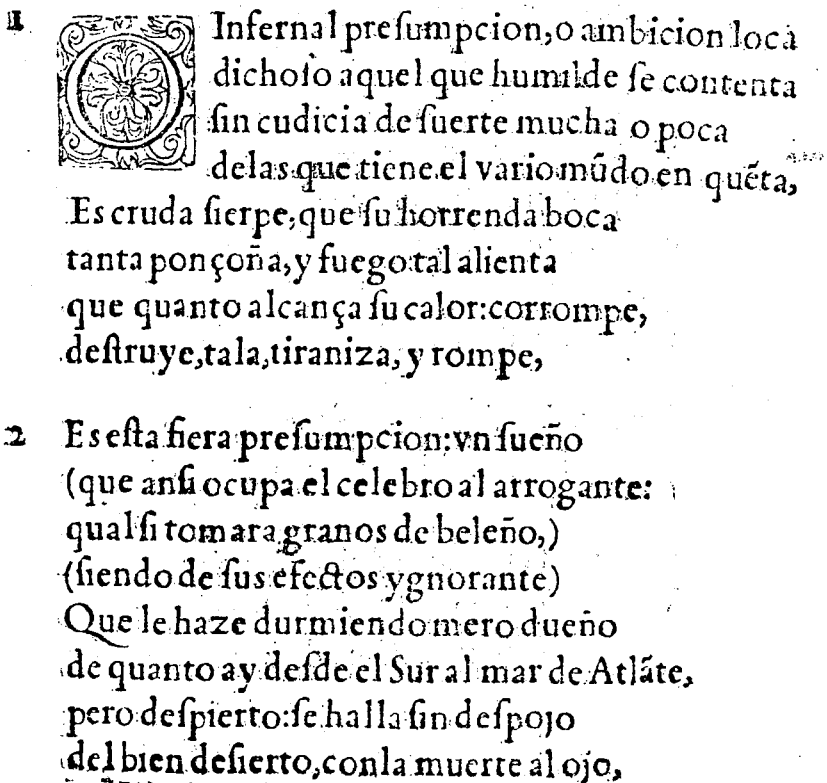 1 O Infernal preſumpcion, o ambicion loca
dichoſo aquel que humilde ſe contenta
ſin cudicia de ſuerte mucha o poca
delas que tiene el vario mũdo en quẽta,
Es cruda ſierpe, que ſu horrenda boca
tanta ponçoña, y fuego tal alienta
que quanto alcança ſu calor: corrompe,
deſtruye, tala, tiraniza, y rompe,
2 Es eſta fiera preſumpcion: vn ſueño
(que anſi ocupa el celebro al arrogante:
qual ſi tomara granos de beleño,)
(ſiendo de ſus efectos ygnorante)
Que le haze durmiendo mero dueño
de quanto ay deſde el Sur al mar de Atlãte,
pero deſpierto: ſe halla ſin deſpojo
del bien deſierto, con la muerte al ojo,